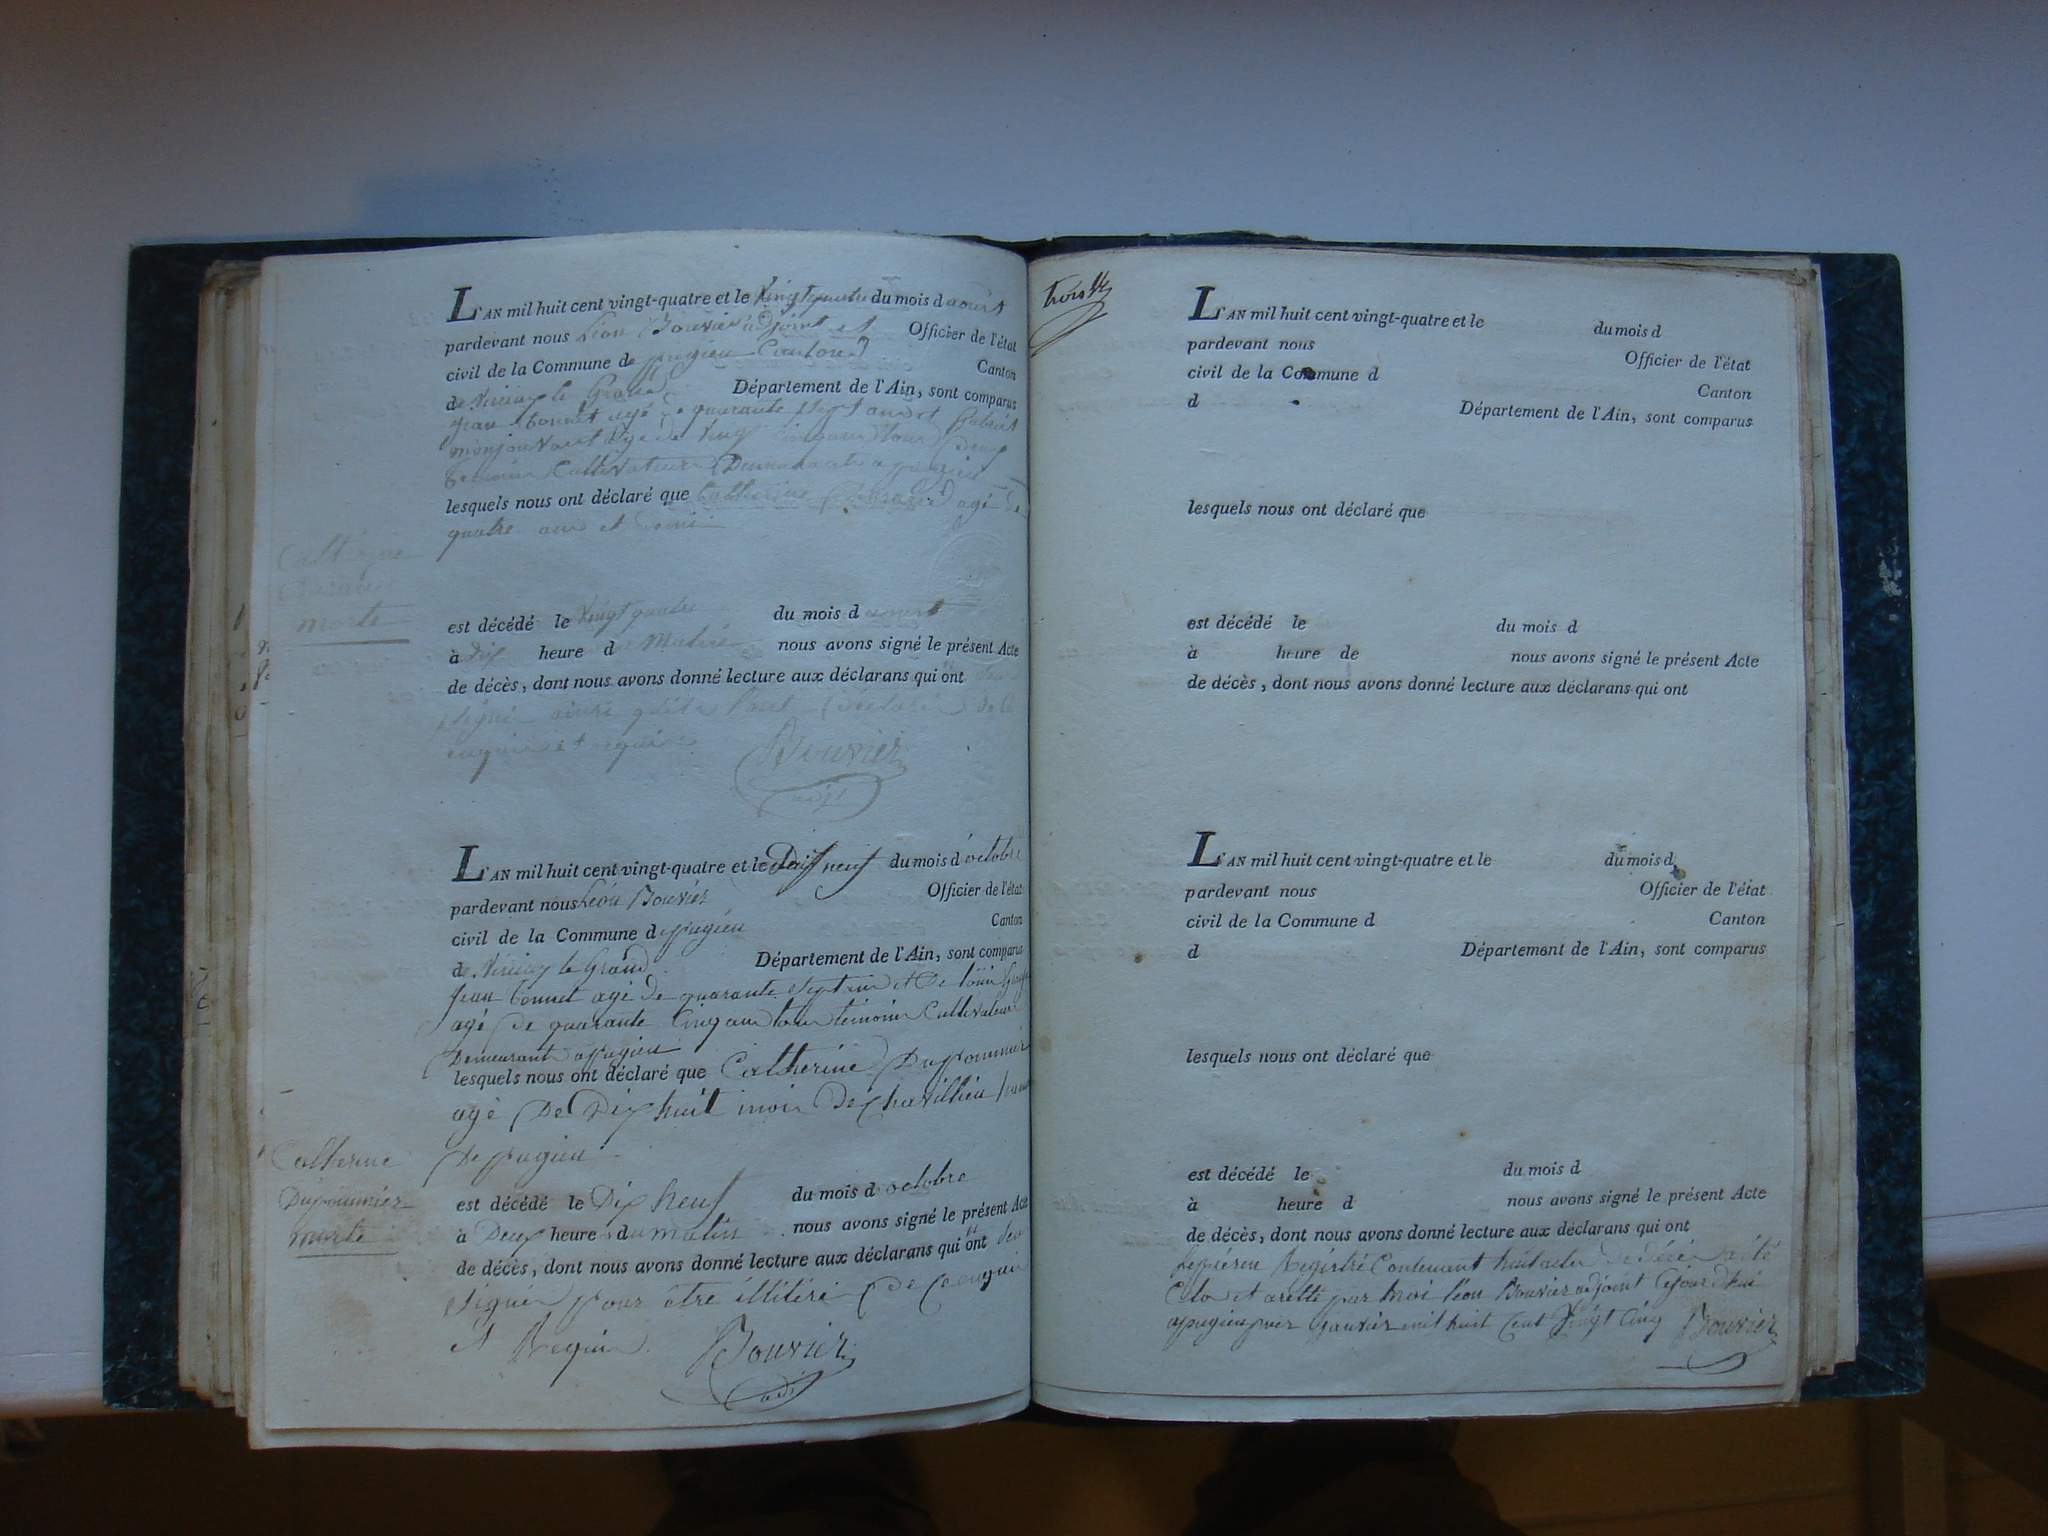 L'AN mil huit cent vingt-quatre et le vingt quatre du mois d août
pardevant nous Léon Bouvier adjoint et Officier de l'état
civil de la Commune de pugieu Canton Canton
de Virieu le Grand Département de l'Ain, sont comparus
Jean bonnet agé de quarante sept ans et
agé de vingt cinq ans tous deux
temoins Cultivateurs Demeurants a pugieu
lesquels nous ont déclaré que Catherine agé de
quatre ans et demi
Catherine
morte
est décédé le vingt quatre du mois d aout
à dix heure d Matin nous avons signé le présent Acte
de décès, dont nous avons donné lecture aux déclarans qui ont
signé ainsi de ce
enquis et requis
Bouvier
adj
L'AN mil huit cent vingt-quatre et le Dix neuf du mois d octobre
pardevant nous Léon Bouvier Officier de l'état
civil de la Commune d pugieu Canton
de Virieu le Grand Département de l'Ain, sont comparus
Jean bonnet agé de quarante sept ans et De louis
agé De quarante Cinq ans tous témoins Cultivateurs
Demeurant a pugieu
lesquels nous ont déclaré que Catherine Dupommier
agé De Dix huit mois De
De pugieu
Catherine
Dupommier
morte
est décédé le Dix neuf du mois d octobre
à Deux heure du matin nous avons signé le présent Acte
de décès, dont nous avons donné lecture aux déclarans qui ont
signer pour être illitéré De Ce enquis
et Requis
Bouvier
adj
trois
L'AN mil huit cent vingt-quatre et le du mois d
pardevant nous Officier de l'état
civil de la Commune d Canton
d Département de l'Ain, sont comparus
lesquels nous ont déclaré que
est décédé le du mois d
à heure de nous avons signé le présent Acte
de décès, dont nous avons donné lecture aux déclarans qui ont
L'AN mil huit cent vingt-quatre et le du mois d
pardevant nous Officier de l'état
civil de la Commune d Canton
d Département de l'Ain, sont comparus
lesquels nous ont déclaré que
est décédé le du mois d
à heure d nous avons signé le présent Acte
de décès, dont nous avons donné lecture aux déclarans qui ont
Le Registre Contenant huit actes De décès a été
Clo et arette par moi léon Bouvier adjoint Cejourdhui
a pugieu janvier mil huit Cent Vingt Cinq Bouvier